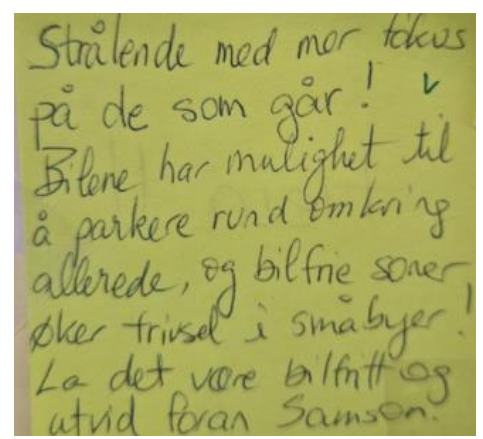 Strålende med mer fokus
på de som går!
Bilene har mulighet til
å parkere rund omkring
allerede, og bilfrie soner
øker trivsel i småbyer!
La det være bilfritt og
utvid foran Samson.